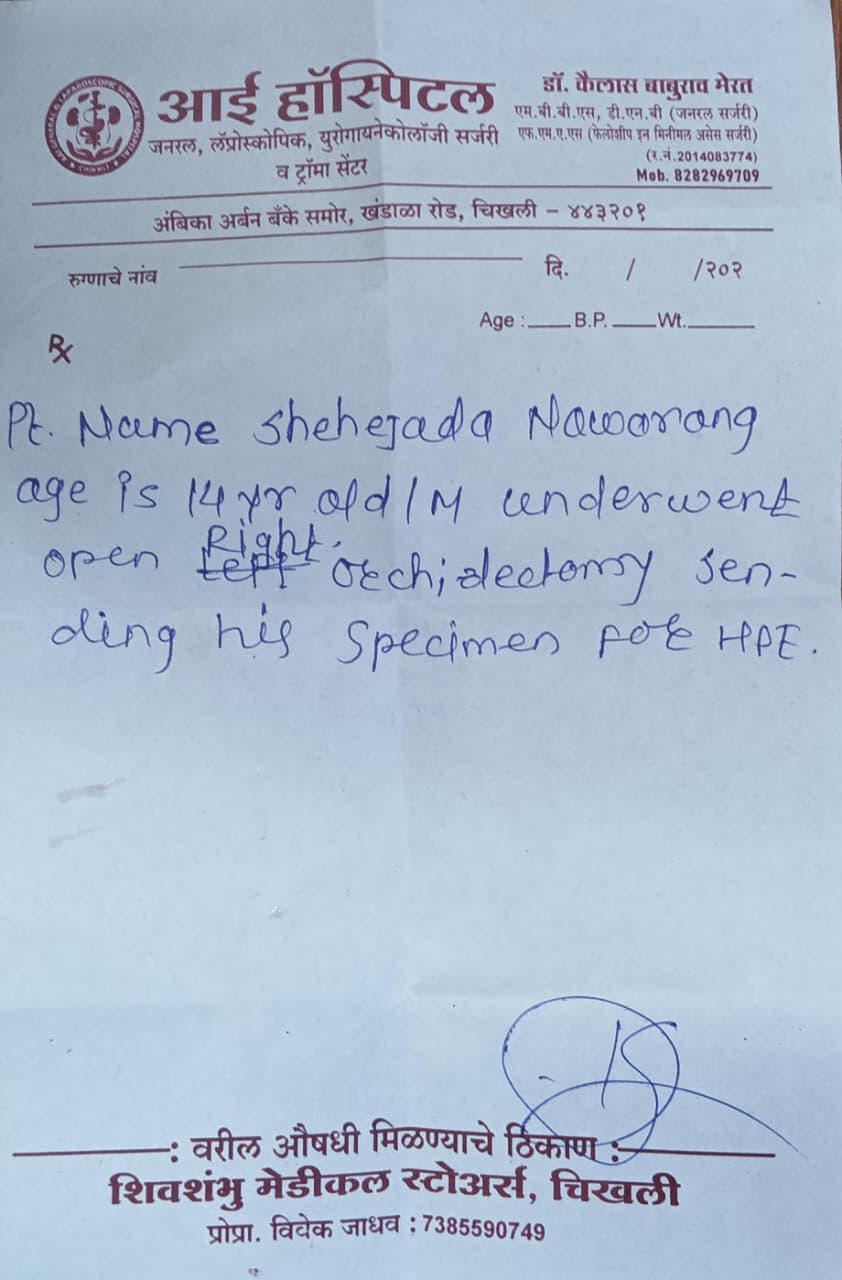 आई हॉस्पिटल
जनरल, लॅप्रोस्कोपिक, युरोगायनेकोलॉजी सर्जरी
व ट्रॉमा सेंटर
डॉ. कैलास बाबुराव मेरत
एम.बी.बी.एस, डी.एन.बी (जनरल सर्जरी)
एफ.एम.ए.एस (फेलोशीप इन मिनीमल असेस सर्जरी)
(र.नं.2014083774)
Mob. 8282969709
अंबिका अर्बन बँके समोर, खंडाळा रोड, चिखली - ४४३२०१
रुग्णाचे नांव दि. / /२०२
Age : B.P. Wt.
Rx
Pt. Name Shehejada Naworang
age is 14 yr old/M underwent
open Right orchidectomy sen-
ding his specimen for HPE.
: वरील औषधी मिळण्याचे ठिकाण :
शिवशंभु मेडीकल स्टोअर्स, चिखली
प्रोप्रा. विवेक जाधव : 7385590749